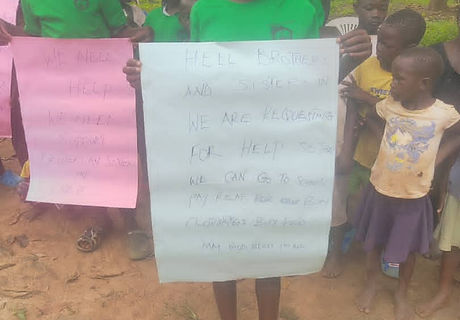 WE NEED
HELP
WE NEED
SUPPORT
IN
HELL BROTHERS
AND SISTERS IN
WE ARE REQUESTING
FOR HELP SO
WE CAN GO TO SCHOOL
PAY FOR OUR BUY
BUY FOOD
MAY GOD BLESS YOU ALL